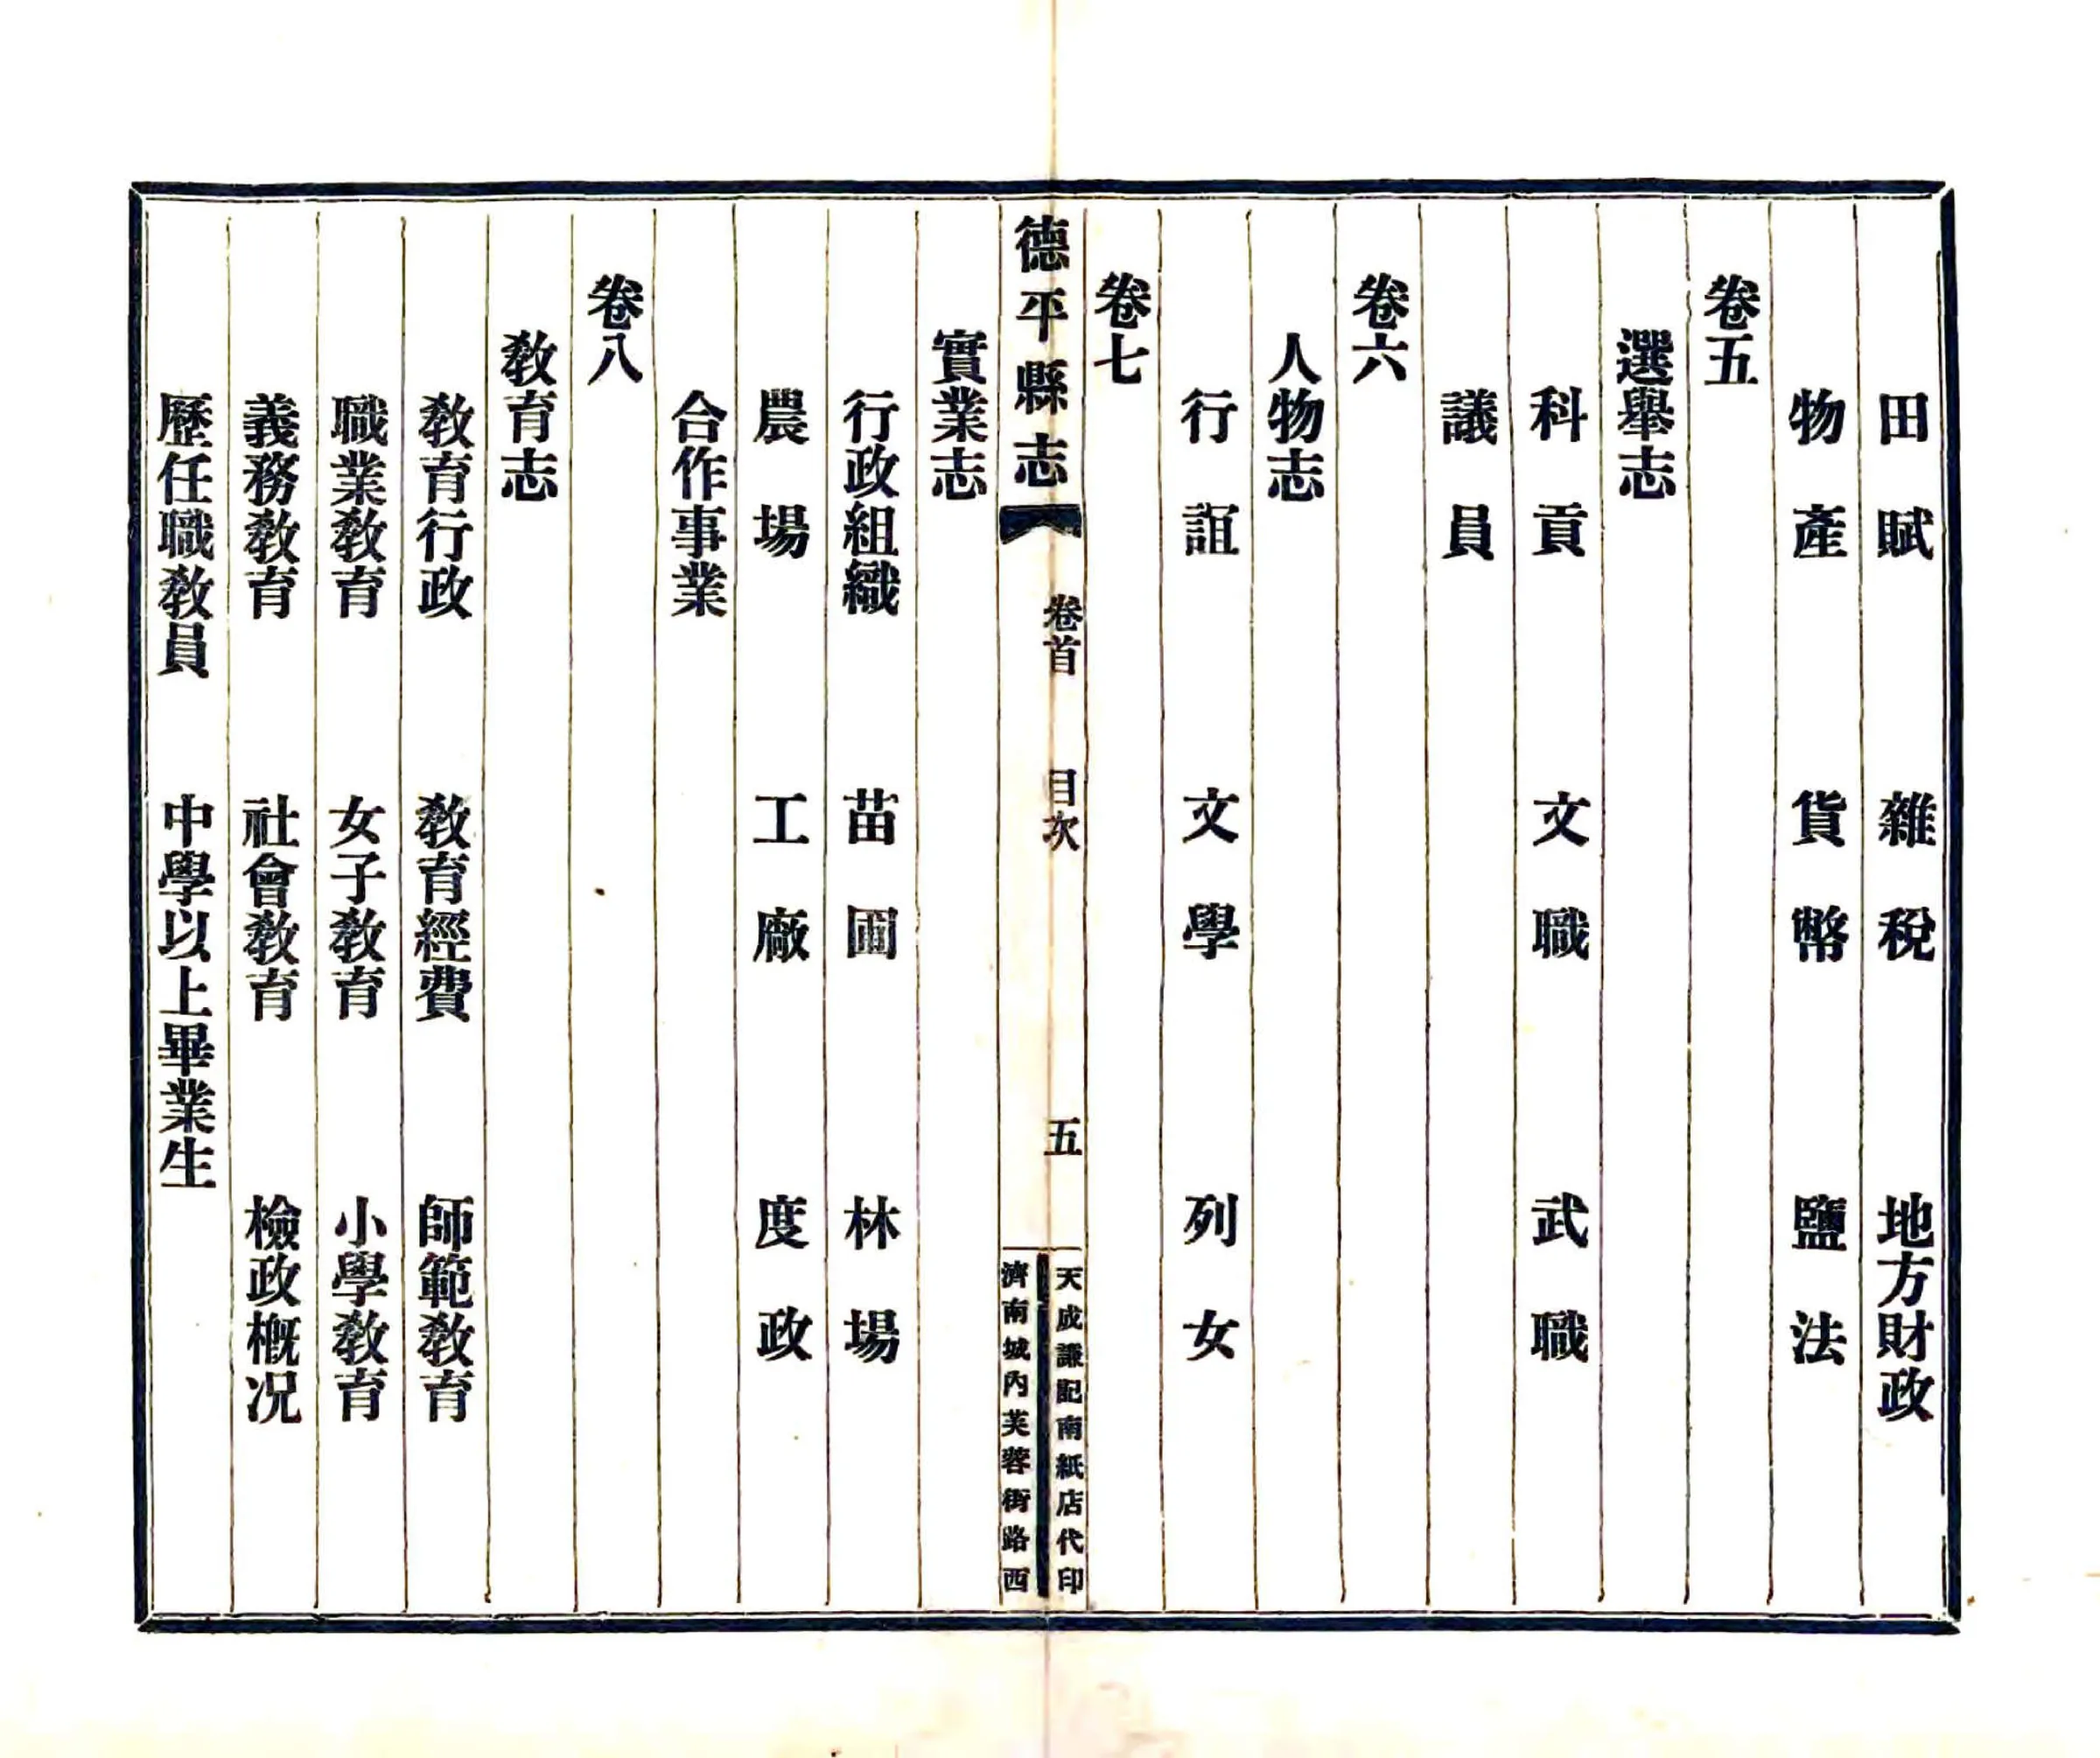 田賦　雜稅　地方財政
物產　貨幣　鹽法
卷五
選舉志
科貢　文職　武職
議員
卷六
人物志
行誼　文學　列女
卷七
德平縣志　卷首　目次　五
天成謙記南紙店代印
濟南城內芙蓉街路西
實業志
行政組織　苗圃　林場
農場　工廠　度政
合作事業
卷八
教育志
教育行政　教育經費　師範教育
職業教育　女子教育　小學教育
義務教育　社會教育　檢政概况
歷任職教員　中學以上畢業生